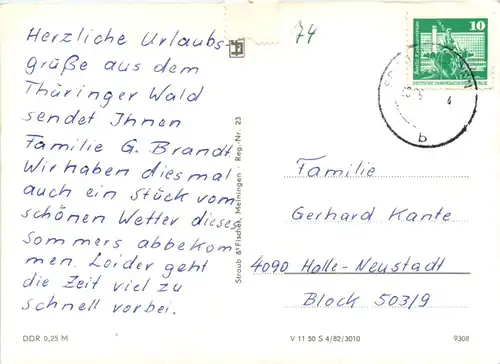 Herzliche Urlaubs-
grüße aus dem
Thüringer Wald
sendet Ihnen
Familie G. Brandt.
Wir haben diesmal
auch ein Stück vom
schönen Wetter dieses
Sommers abbekom
men. Leider geht
die Zeit viel zu
schnell vorbei.
DDR 0,25 M
74
Straub & Fischer, Meiningen · Reg.-Nr. 23
10
DEUTSCHE DEMOKRATISCHE REPUBLIK
b
Familie
Gerhard Kante
4090 Halle-Neustadt
Block 503/9
V 11 50 S 4/82/3010
9308